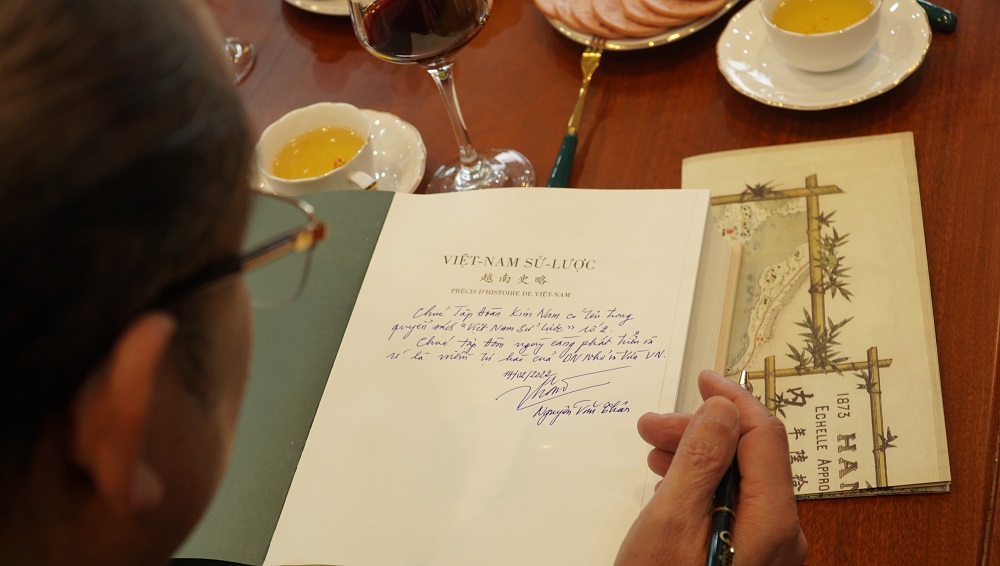 VIỆT-NAM SỬ-LƯỢC
越南史略
PRÉCIS D'HISTOIRE DE VIỆT-NAM
Chúc Tập đoàn Kim Nam có tên trong
quyển sách "Việt Nam Sử lược" số 2.
Chúc tập đoàn ngày càng phát triển và
sẽ là niềm tự hào của "DN Nhỏ và Vừa VN.
17/02/2022
Nguyễn Văn Thân
HAN
1873
ECHELLE APPRO
內
年陸拾